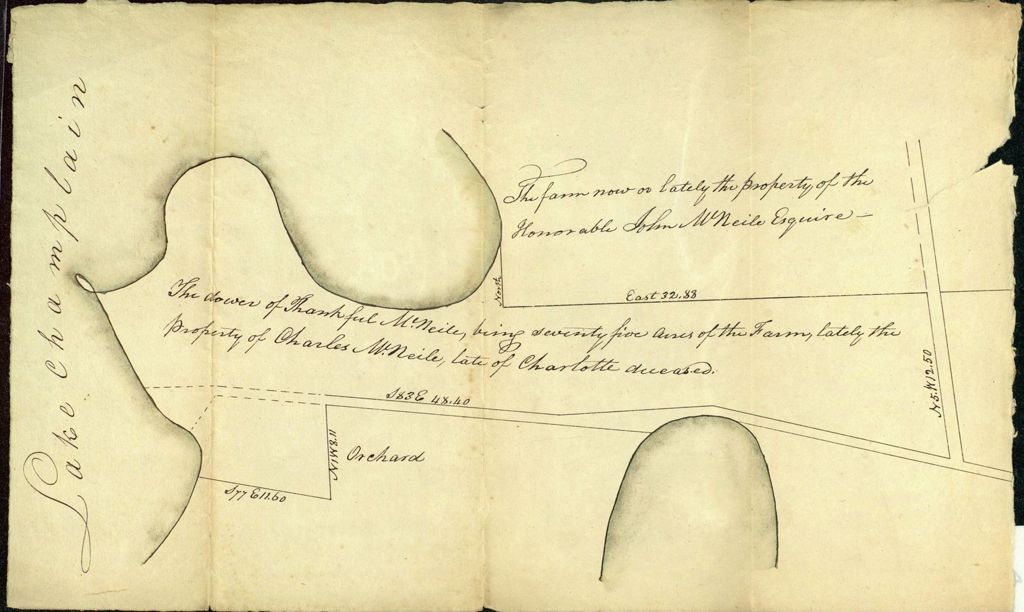 Lake Champlain
The farm now or lately the property of the
Honorable John McNeile Esquire –
North
East 32.88
The dower of Thankful McNeile, being seventy five acres of the Farm, lately the
Property of Charles McNeile, late of Charlotte deceased.
N5.W12.50
S83E 48.40
N1W8.11
Orchard
S77E11.60